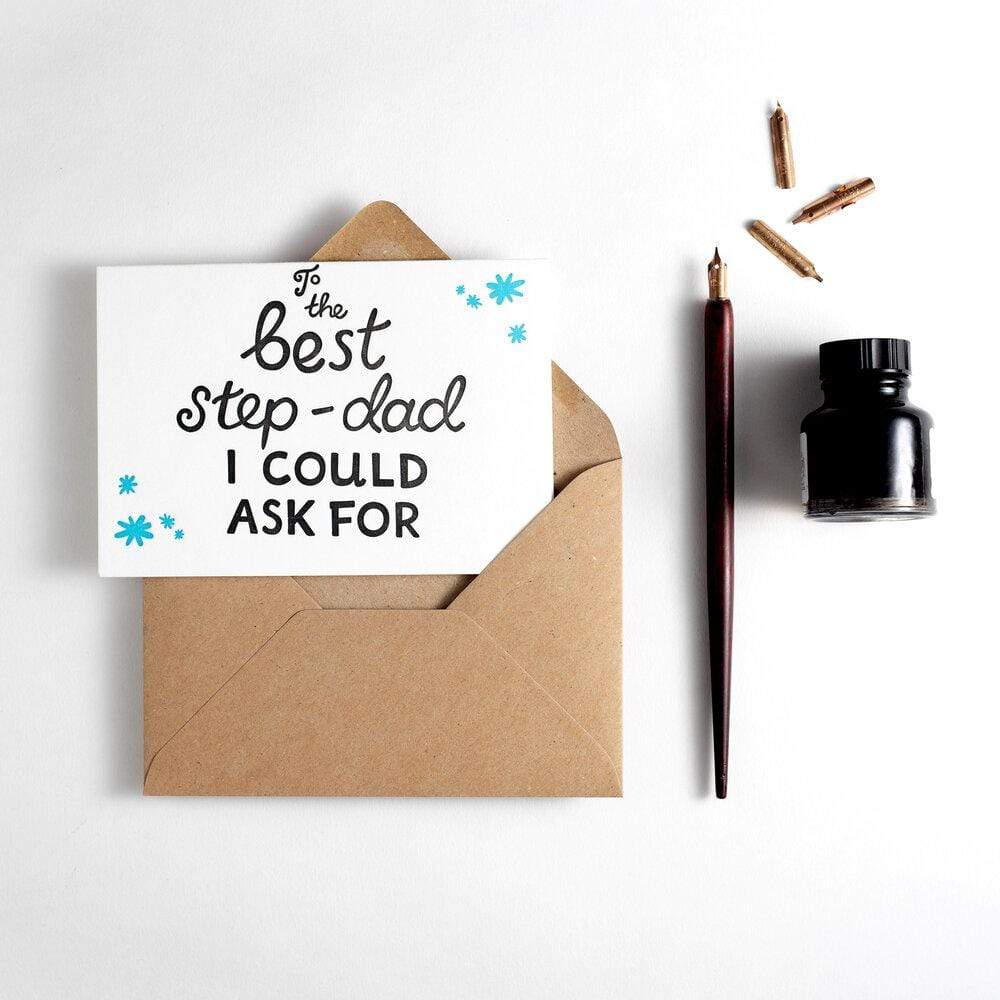 To
the
best
step-dad
I COULD
ASK FOR